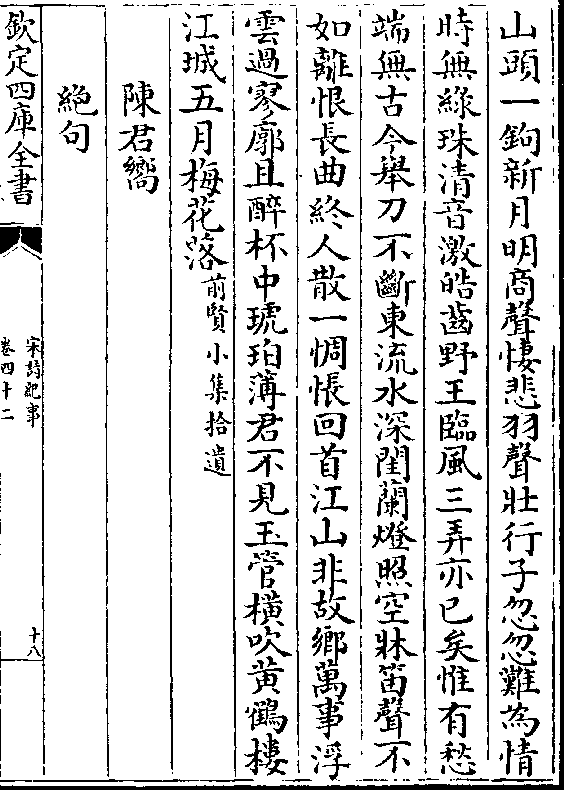 山頭一鉤新月明商聲悽悲羽聲壯行子忽忽難為情
時無綠珠清音激皓齒野王臨風三弄亦已矣惟有愁
端無古今舉刀不斷東流水深閨蘭燈照空牀笛聲不
如離恨長曲終人散一惆悵回首江山非故鄉萬事浮
雲過寥廓且醉杯中琥珀薄君不見玉管橫吹黄鶴樓
江城五月梅花落前賢小集拾遺
陳君嚮
絶句
欽定四庫全書
宋詩紀事
卷四十二
十八